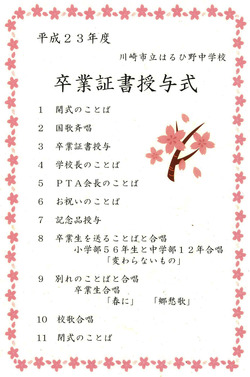 平成２３年度
川崎市立はるひ野中学校
卒業証書授与式
1 開式のことば
2 国歌斉唱
3 卒業証書授与
4 学校長のことば
5 ＰＴＡ会長のことば
6 お祝いのことば
7 記念品授与
8 卒業生を送ることばと合唱
小学部５６年生と中学部１２年合唱
「変わらないもの」
9 別れのことばと合唱
卒業生合唱
「春に」 「郷愁歌」
10 校歌合唱
11 閉式のことば